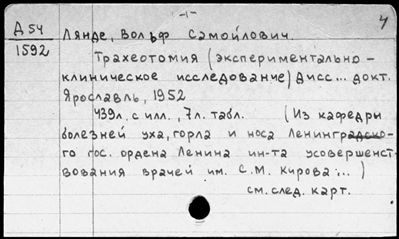 -1-
4
Д 54
1592
Лянде, Вольф Самойлович.
Трахеотомия (экспериментально-
клиническое исследование) Дисс... докт.
Ярославль, 1952
439л. с илл., 7л. табл. (Из кафедры
болезней уха, горла и носа Ленинградско-
го гос. ордена Ленина ин-та усовершенст-
вования врачей им. С.М. Кирова...)
см. след. карт.